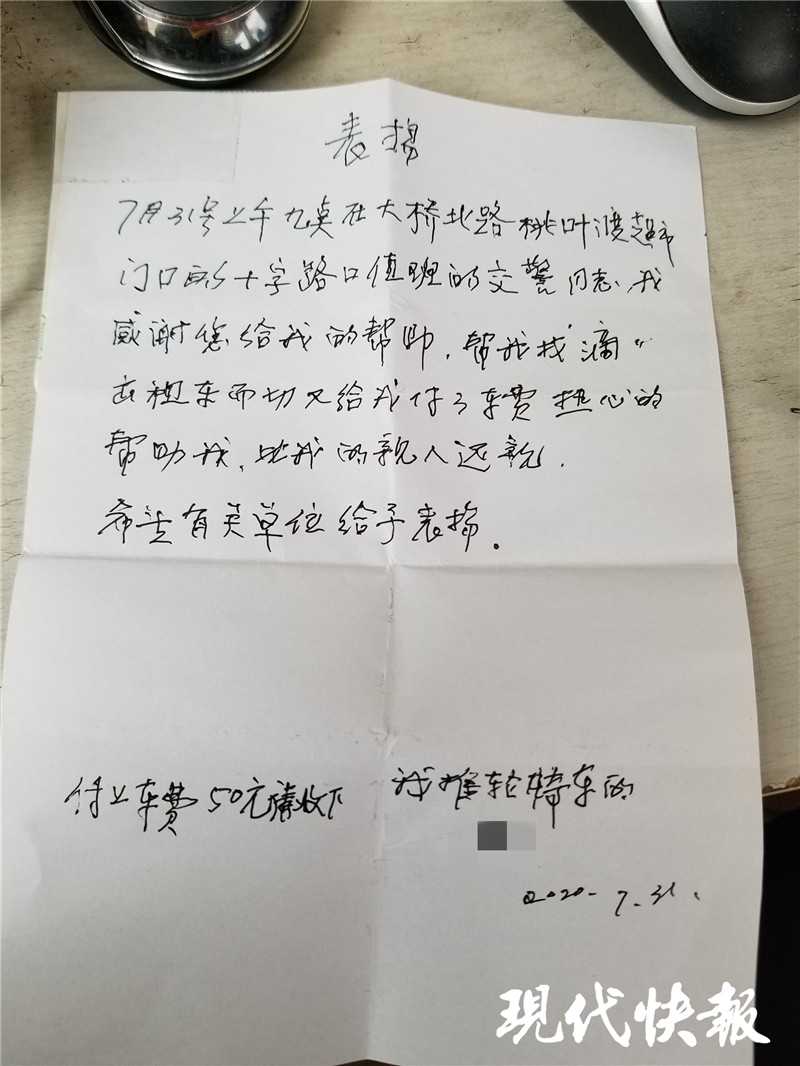 表扬
7月31号上午九点在大桥北路桃叶渡超市
门口的十字路口值班的交警同志,我
感谢您给我的帮助,帮我找“滴”
出租车而切又给我付了车费热心的
帮助我,比我的亲人还亲.
希望有关单位给予表扬。
付上车费50元请收下
我推轮椅车的
2020-7.31.
现代快报